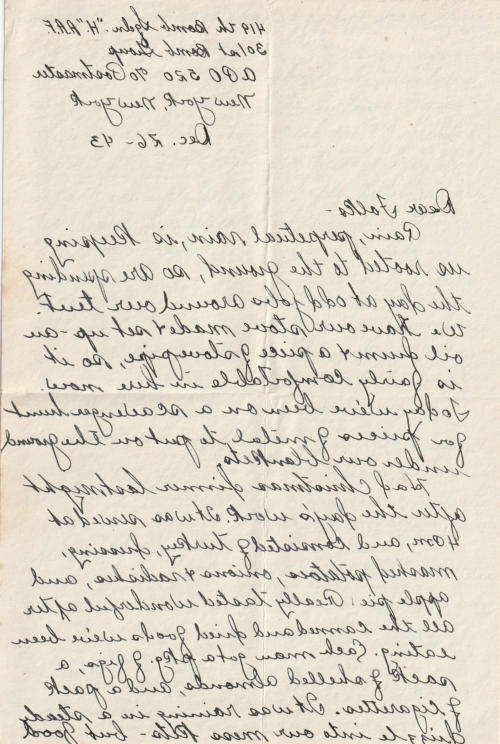 419th Bomb Sqdn. "H" A.A.F.
301st Bomb Group
APO 520 % Postmaster
New York, New York
Dec. 26 - 43
Dear Folks -
Rain, perpetual rain, is keeping
us rooted to the ground, so are spending
the day at odd jobs around our tent.
We have our stove made & set up - an
oil drum & a piece of stovepipe, so it
is fairly comfortable in here now.
Today we've been on a scavenger hunt
for pieces of metal to put on the ground
under our blankets.
Had Christmas dinner last night
after the day's work. It was served at
4 PM, and consisted of turkey, dressing,
mashed potatoes, onions & radishes, and
apple pie. Really tasted wonderful after
all the canned and dried goods we've been
eating. Each man got a pkg. of figs, a
pack of shelled almonds, and a pack
of cigarettes. It was raining in a steady
drizzle into our mess kits - but good